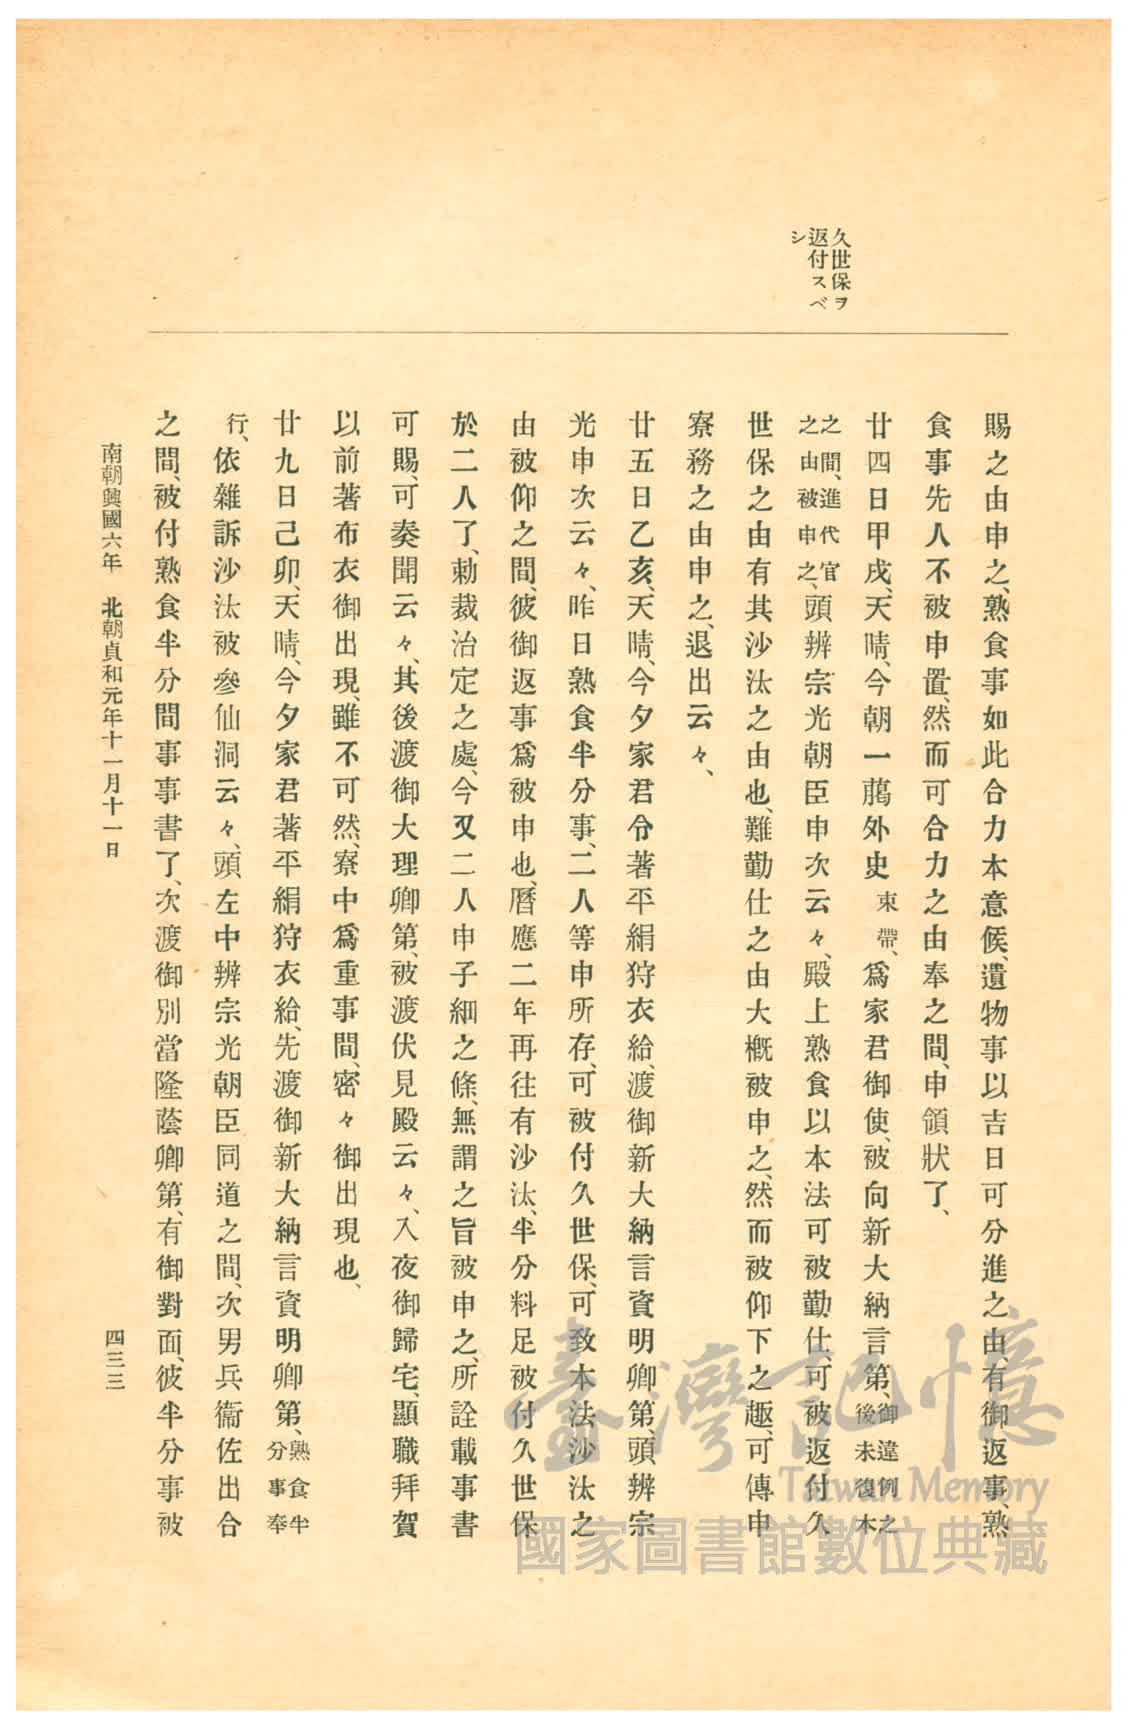 久世保ヲ
返付スベ
シ
賜之由申之、熟食事如此合力本意候、遺物事以吉日可分進之由、有御返事、熟
食事先人不被申置、然而可合力之由奉之間、申領狀了、
廿四日甲戌、天晴、今朝一﨟外史束帶、爲家君御使、被向新大納言第、御違例之後未復本
之間、進代官之由被申之、頭辨宗光朝臣申次云々、殿上熟食以本法可被勤仕、可被返付久
世保之由有其沙汰之由也、難勤仕之由大槪被申之、然而被仰下之趣、可傳申
寮務之由申之、退出云々、
廿五日乙亥、天晴、今夕家君令著平絹狩衣給、渡御新大納言資明卿第、頭辨宗
光申次云々、昨日熟食半分事、二人等申所存、可被付久世保、可致本法沙汰之
由被仰之間、彼御返事爲被申也、曆應二年再往有沙汰、半分料足被付久世保
於二人了、勅裁治定之處、今又二人申子細之條、無謂之旨被申之、所詮載事書
可賜、可奏聞云々、其後渡御大理卿第、被渡伏見殿云々、入夜御歸宅、顯職拜賀
以前著布衣御出現、雖不可然、寮中爲重事間、密々御出現也、
廿九日己卯、天晴、今夕家君著平絹狩衣給、先渡御新大納言資明卿第、熟食半分事奉
行、依雜訴沙汰被參仙洞云々、頭左中辨宗光朝臣同道之間、次男兵衞佐出合
之間、被付熟食半分間事事書了、次渡御別當隆蔭卿第、有御對面、彼半分事被
南朝興國六年 北朝貞和元年十一月十一日
四三三
臺灣記憶
Taiwan Memory
國家圖書館數位典藏